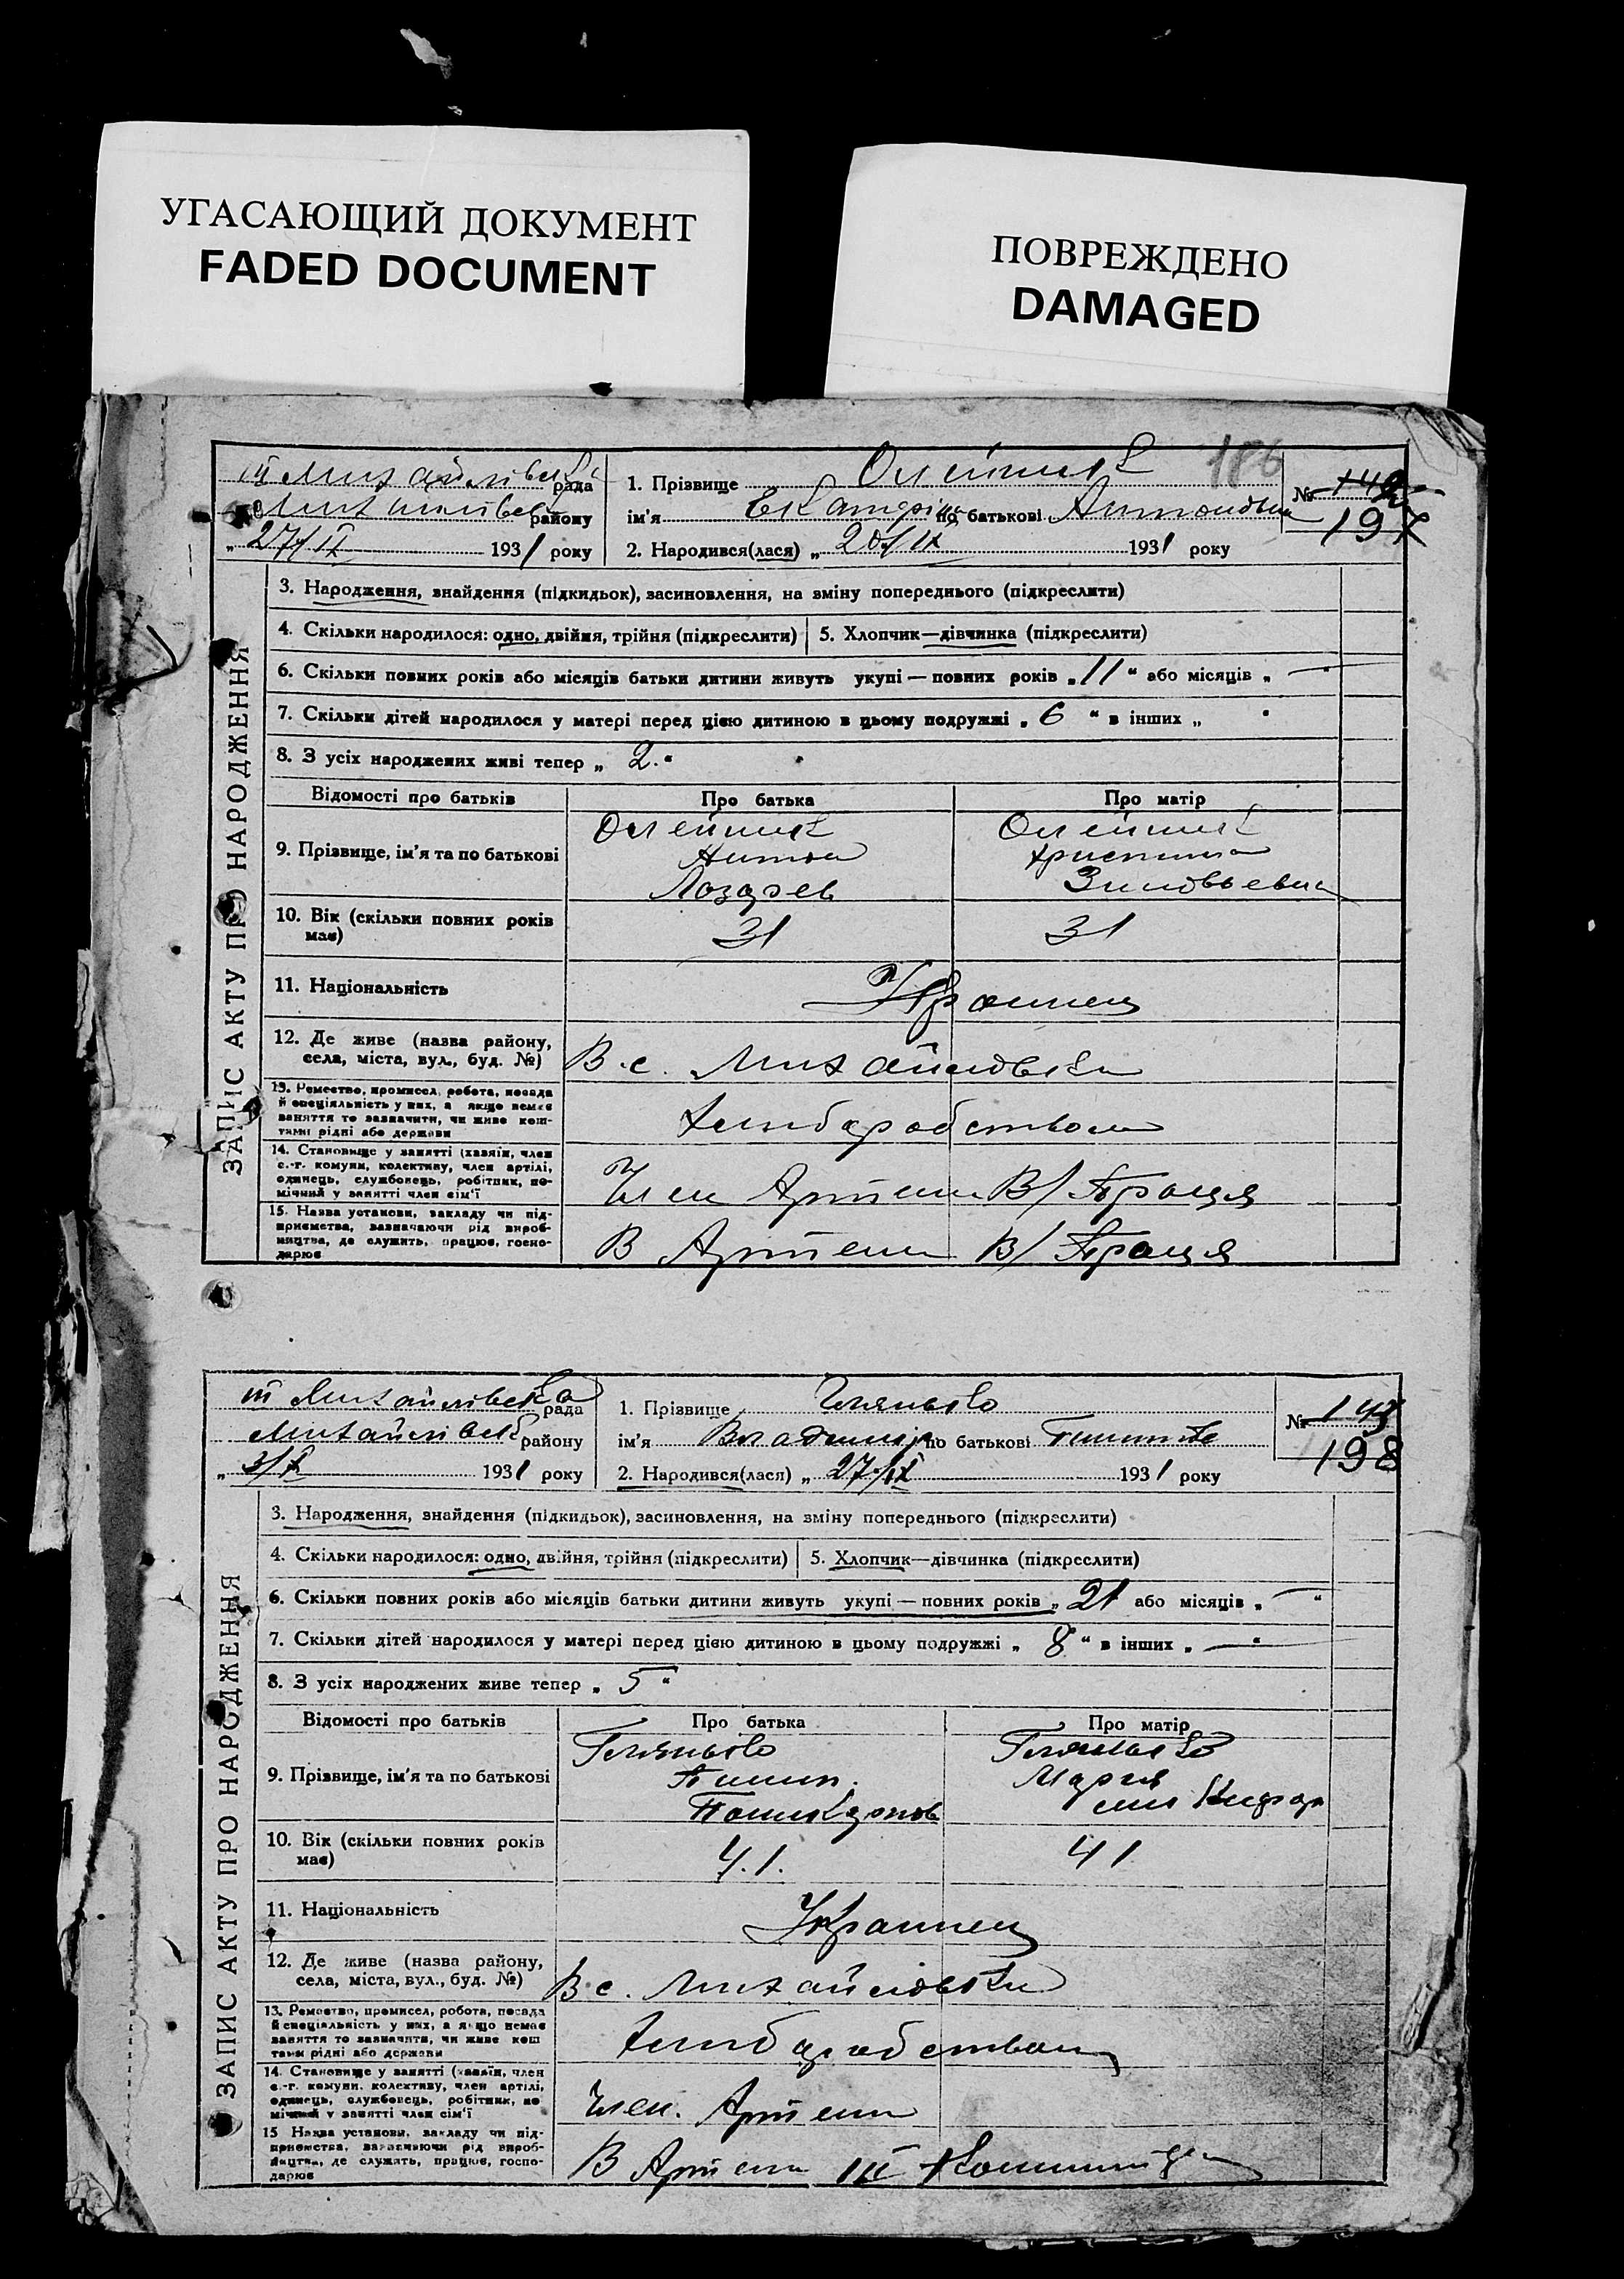 УГАСАЮЩИЙ ДОКУМЕНТ
FADED DOCUMENT
ПОВРЕЖДЕНО
DAMAGED
186
ЗАПИС АКТУ ПРО НАРОДЖЕННЯ
III Михайлівська рада
району
„27/IX 1931 року
1. Прізвище Олейник
№ 197
ім'я Екатеріна по батькові Антоновна
2. Народився(лася) „20/IX 1931 року
3. Народження, знайдення (підкидьок), засиновлення, на зміну попереднього (підкреслити)
4. Скільки народилося: одно, двійня, трійня (підкреслити)
5. Хлопчик—дівчинка (підкреслити)
6. Скільки повних років або місяців батьки дитини живуть укупі — повних років „11“ або місяців „—“
7. Скільки дітей народилося у матері перед цією дитиною в цьому подружжі „6“ в інших „ “
8. З усіх народжених живі тепер „2.“
Відомості про батьків
Про батька
Про матір
9. Прізвище, ім'я та по батькові
Олейник
Антон
Лазарев
Олейник
Христина
Зиновьевна
10. Вік (скільки повних років має)
31
31
11. Національність
Украинец
12. Де живе (назва району,
села, міста, вул., буд. №)
В с. Михайловки
13. Ремество, промисел, робота, посада
й спеціяльність у них, а якщо немає
заняття то зазначити, чи живе кош-
тами рідні або держави
Хлиборобством
14. Становище у занятті (хазяїн, член
с.-г. комуни, колективу, член артілі,
одинець, службовець, робітник, по-
мічний у занятті член сім'ї
Член Артели В/Праця
15. Назва установи, закладу чи під-
приємства, зазначаючи рід вироб-
ництва, де служить, працює, госпо-
дарює
В Артели В/Праця
ЗАПИС АКТУ ПРО НАРОДЖЕННЯ
III Михайлівська рада
Михайлівськ району
„3/X 1931 року
1. Прізвище
№ 198
ім'я Владимир по батькові
2. Народився(лася) „27/IX 1931 року
3. Народження, знайдення (підкидьок), засиновлення, на зміну попереднього (підкреслити)
4. Скільки народилося: одно, двійня, трійня (підкреслити)
5. Хлопчик—дівчинка (підкреслити)
6. Скільки повних років або місяців батьки дитини живуть укупі — повних років „21 або місяців „—“
7. Скільки дітей народилося у матері перед цією дитиною в цьому подружжі „8“ в інших „—“
8. З усіх народжених живе тепер „5“
Відомості про батьків
Про батька
Про матір
9. Прізвище, ім'я та по батькові
Мария
10. Вік (скільки повних років має)
4.1.
41
11. Національність
Украинец
12. Де живе (назва району,
села, міста, вул., буд. №)
В с. Михайловки
13. Ремество, промисел, робота, посада
й спеціяльність у них, а якщо немає
заняття то зазначити, чи живе кош
тами рідні або держави
Хлиборобством
14. Становище у занятті (хазяїн, член
с.-г. комуни, колективу, член артілі,
одинець, службовець, робітник, по
мічний у занятті член сім'ї
Член. Артели
15 Назва установи, закладу чи під-
приємства, зазначаючи рід вироб-
ництва, де служить, працює, госпо-
дарює
В Артели III